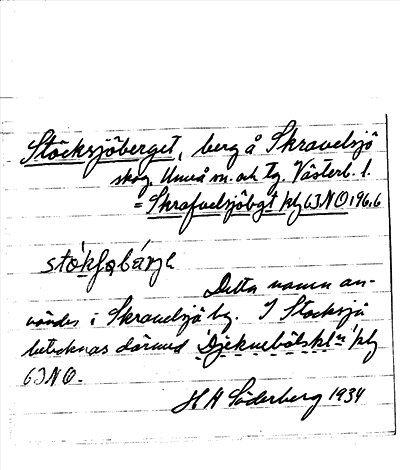 Stöcksjöberget, berg å Skravelsjö
skog, Umeå sn. och tg. Västerb. l.
= Skrafvelsjöbgt kbl 63NO 196.6
Detta namn an-
vändes i Skravelsjö by. I Stöcksjö
betecknas därmed
63NO.
H H Söderberg 1934